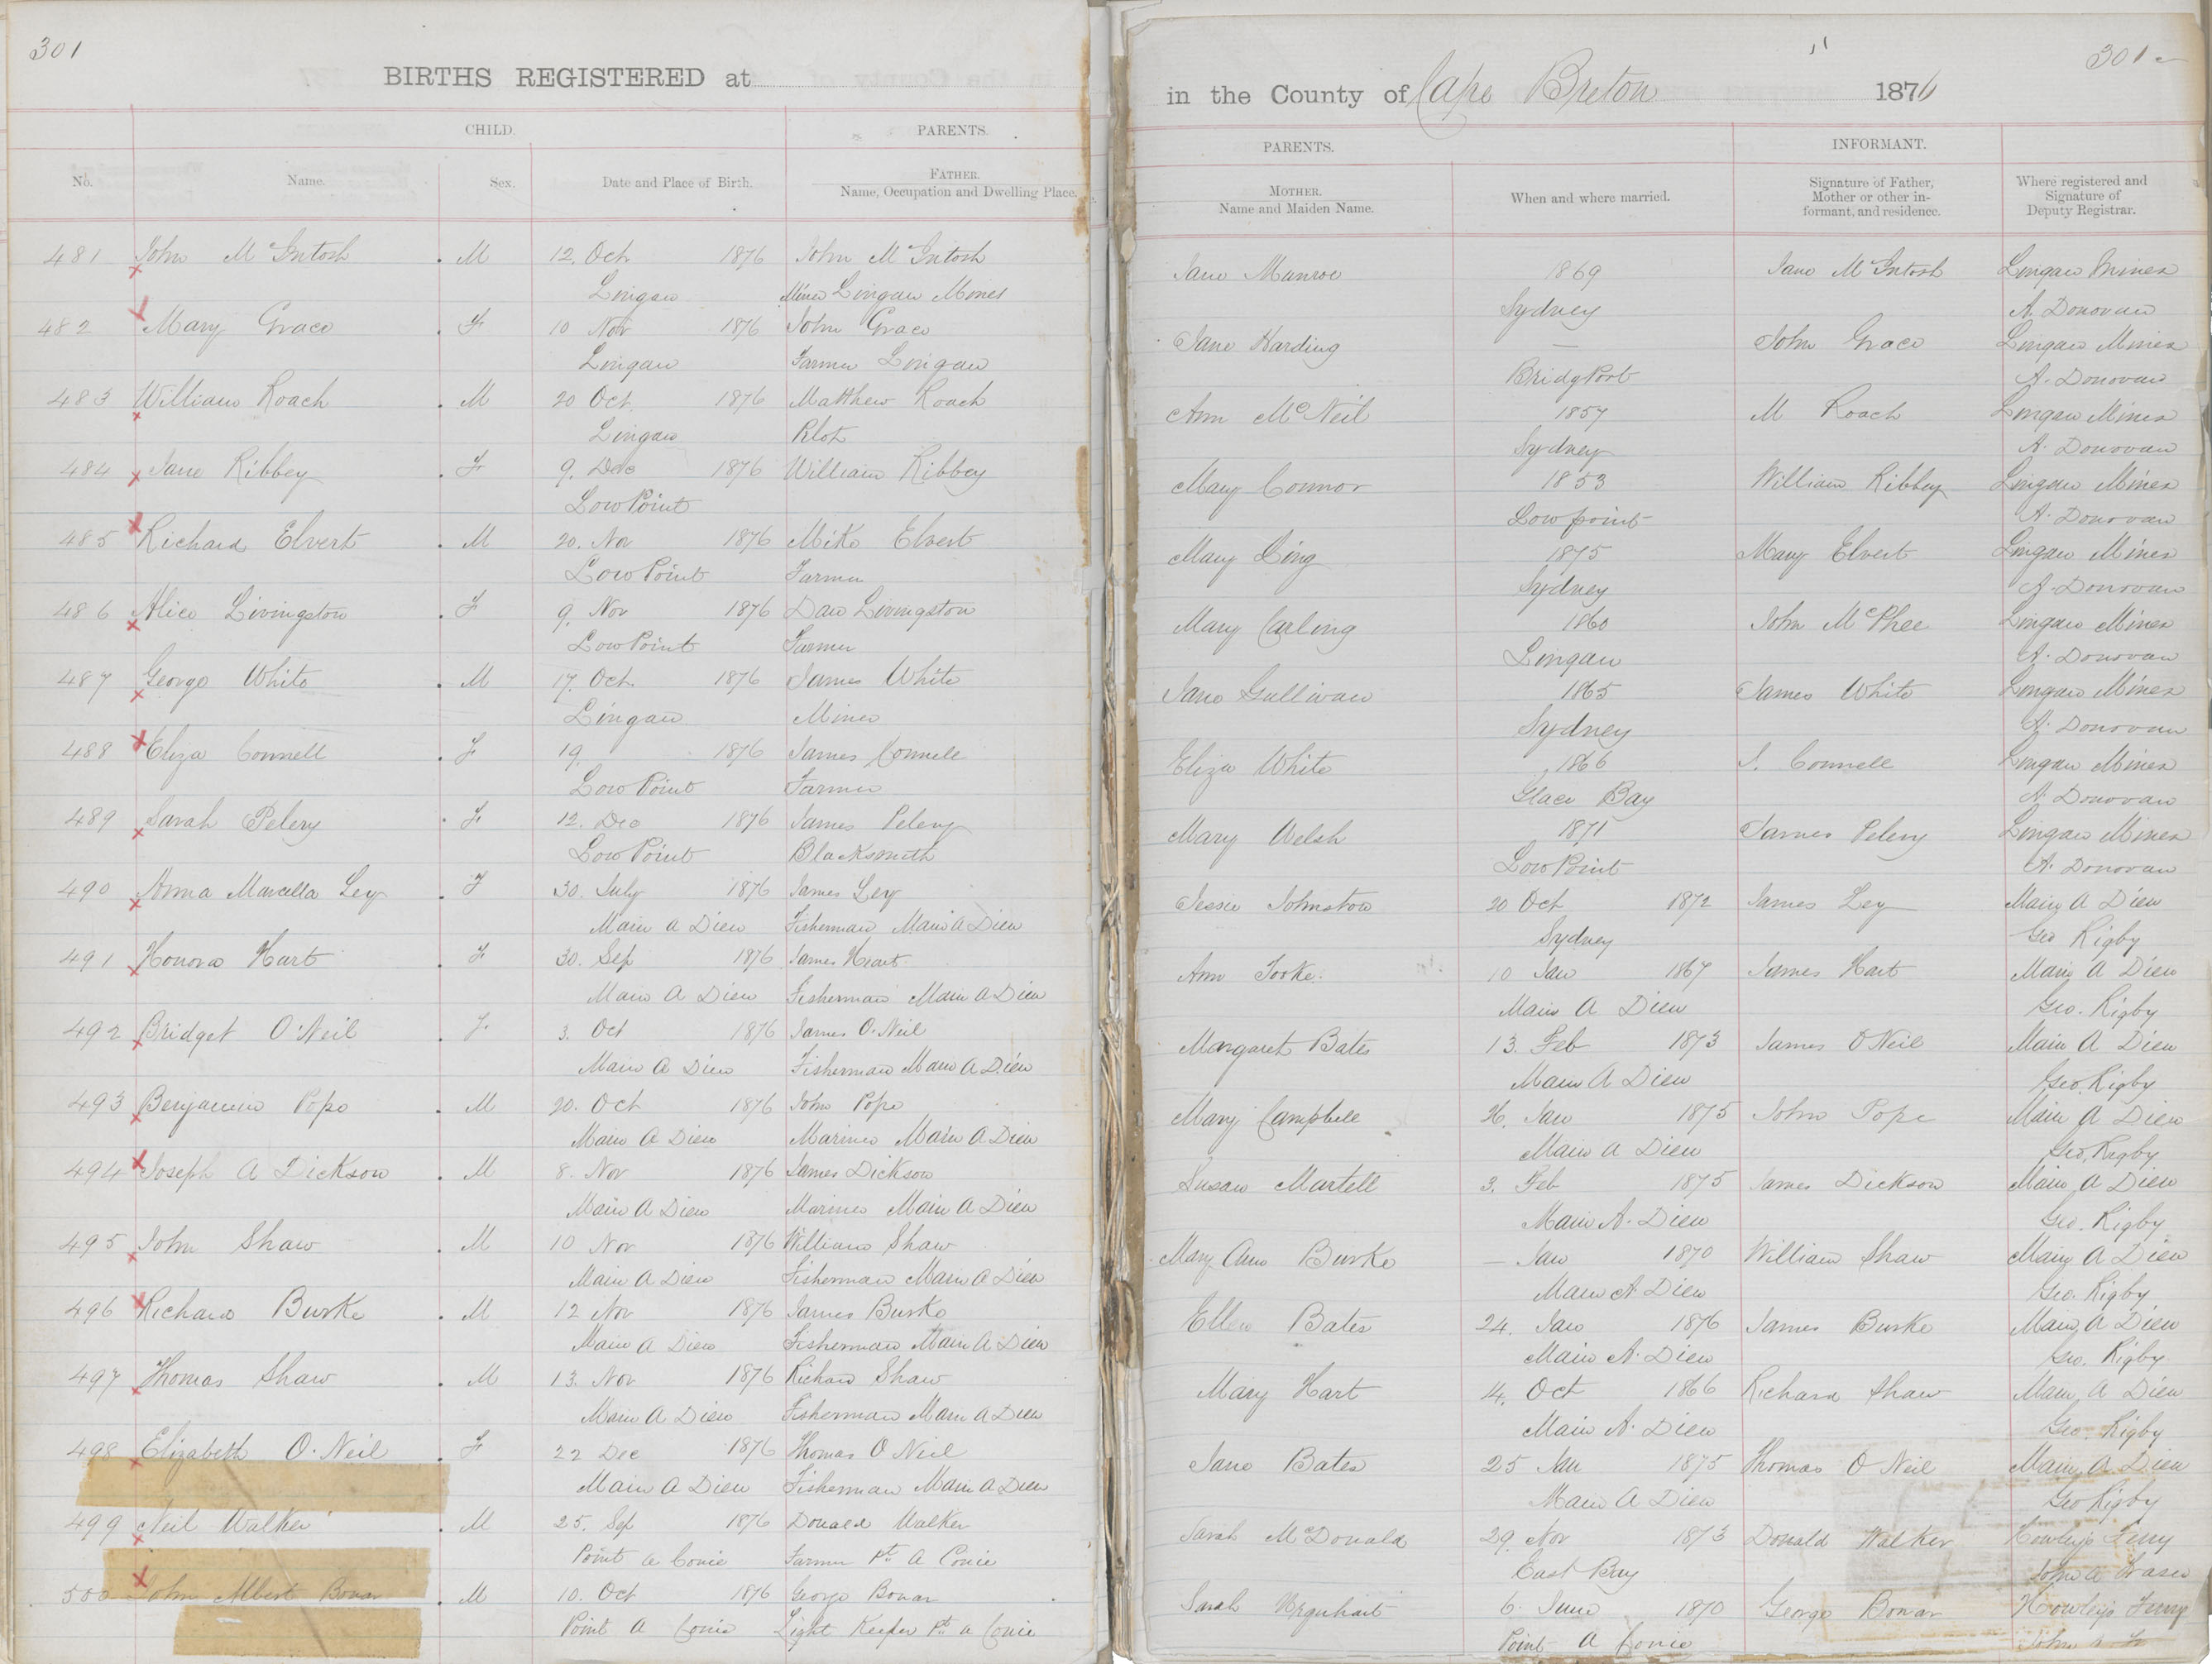 301
BIRTHS REGISTERED at
CHILD.
PARENTS.
No.
Name.
Sex.
Date and Place of Birth.
FATHER.
Name, Occupation and Dwelling Place.
481 John McIntosh . M 12. Oct 1876 John McIntosh
Lingan Miner Lingan Mines
482 Mary Grace . F 10 Nov 1876 John Grace
Lingan Farmer Lingan
483 William Roach . M 20 Oct 1876 Matthew Roach
Lingan Pilot
484 Jane Kibbey . F 9. Dec 1876 William Kibbey
Low Point
485 Richard Elvert . M 20. Nov 1876 Mike Elvert
Low Point Farmer
486 Alice Livingston . F 9. Nov 1876 Dan Livingston
Low Point Farmer
487 George White . M 17. Oct 1876 James White
Lingan Miner
488 Eliza Connell . F 19. 1876 James Connell
Low Point Farmer
489 Sarah Pelery . F 12. Dec 1876 James Pelery
Low Point Blacksmith
490 Anna Marcella Ley . F 30. July 1876 James Ley
Main A Dieu Fisherman Main A Dieu
491 Honora Hart . F 30. Sep 1876 James Heart
Main A Dieu Fisherman Main A Dieu
492 Bridget O'Neil . F 3. Oct 1876 James O.Neil
Main A Dieu Fisherman Main A Dieu
493 Benjamin Pope . M 20. Oct 1876 John Pope
Main A Dieu Mariner Main A Dieu
494 Joseph A Dickson . M 8. Nov 1876 James Dickson
Main A Dieu Mariner Main A Dieu
495 John Shaw . M 10 Nov 1876 William Shaw
Main A Dieu Fisherman Main A Dieu
496 Richard Burke . M 12 Nov 1876 James Burke
Main A Dieu Fisherman Main A Dieu
497 Thomas Shaw . M 13. Nov 1876 Richard Shaw
Main A Dieu Fisherman Main A Dieu
498 Elizabeth O.Neil . F 22 Dec 1876 Thomas O Neil
Main A Dieu Fisherman Main A Dieu
499 Neil Walker . M 25. Sep 1876 Donald Walker
Point a Conie Farmer Pt A Conie
500 John Albert Bonar . M 10. Oct 1876 George Bonar
Point A Conie Light Keeper Pt a Conie
301
in the County of Cape Breton 1876
PARENTS.
INFORMANT.
MOTHER.
Name and Maiden Name.
When and where married.
Signature of Father,
Mother or other in-
formant, and residence.
Where registered and
Signature of
Deputy Registrar.
Jane Munroe 1869 Jane McIntosh Lingan Mines
Sydney A. Donovan
Jane Harding — John Grace Lingan Mines
Bridgport A. Donovan
Ann McNeil 1857 M Roach Lingan Mines
Sydney A. Donovan
Mary Connor 1853 William Kibbey Lingan Mines
Low point A. Donovan
Mary Ling 1875 Mary Elvert Lingan Mines
Sydney A. Donovan
Mary Carling 1860 John McPhee Lingan Mines
Lingan A. Donovan
Jane Gullivan 1865 James White Lingan Mines
Sydney A. Donovan
Eliza White 1866 J. Connell Lingan Mines
Glace Bay A. Donovan
Mary Welsh 1871 James Pelery Lingan Mines
Low Point A. Donovan
Jessie Johnston 20 Oct 1872 James Ley Main A Dieu
Sydney Geo Rigby
Ann Tooke. 10 Jan 1867 James Hart Main A Dieu
Main A Dieu Geo. Rigby
Margaret Bates 13. Feb 1873 James O Neil Main A Dieu
Main A Dieu Geo. Rigby
Mary Campbell 26. Jan 1875 John Pope Main A Dieu
Main A Dieu Geo. Rigby
Susan Martell 3. Feb 1875 James Dickson Main A Dieu
Main A. Dieu Geo. Rigby
Mary Ann Burke — Jan 1870 William Shaw Main A Dieu
Main A Dieu Geo. Rigby
Ellen Bates 24. Jan 1876 James Burke Main A Dieu
Main A. Dieu Geo. Rigby
Mary Hart 14. Oct 1866 Richard Shaw Main A Dieu
Main A. Dieu Geo. Rigby
Jane Bates 25 Jan 1875 Thomas O Neil Main A Dieu
Main A Dieu Geo Rigby
Sarah McDonald 29. Nov 1873 Donald Walker Howleys Ferry
East Bay John A Fraser
Sarah Urquhart 6. June 1870 George Bonar Howleys Ferry
Point A Conie John A